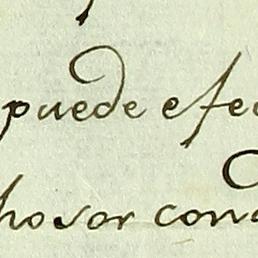 puede efec
hosor cond